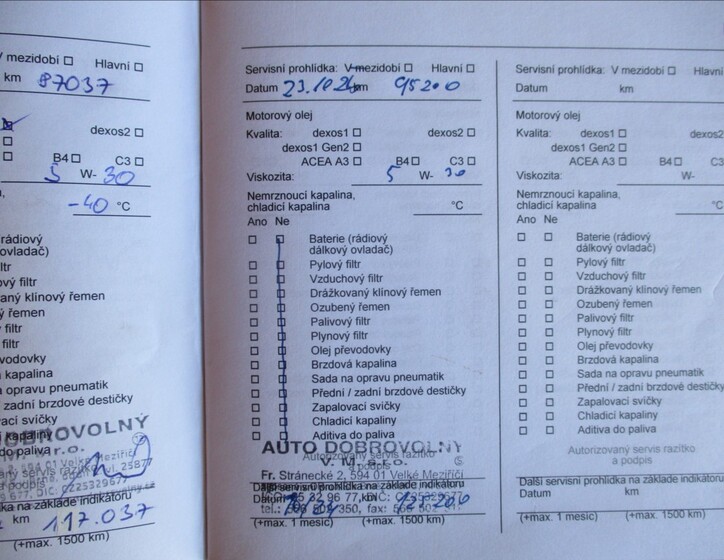 V mezidobí ☐ Hlavní ☐
km 87037
dexos2 ☐
B4 ☐ C3 ☐
5 W- 30
-40 °C
rádiový
ovladač)
ltr
ový filtr
vaný klínový řemen
ý řemen
filtr
filtr
vodovky
kapalina
a opravu pneumatik
/ zadní brzdové destičky
svíčky
kapaliny
do paliva
DOBROVOLNÝ
km 117.037
(+max. 1500 km)
Servisní prohlídka: V mezidobí ☐ Hlavní ☐
Datum 23.10.24 km 95200
Motorový olej
Kvalita: dexos1 ☐ dexos2 ☐
dexos1 Gen2 ☐
ACEA A3 ☐ B4 ☐ C3 ☐
Viskozita: 5 W- 30
Nemrznoucí kapalina,
chladicí kapalina °C
Ano Ne
☐ ☐ Baterie (rádiový
dálkový ovladač)
☐ ☐ Pylový filtr
☐ ☐ Vzduchový filtr
☐ ☐ Drážkovaný klínový řemen
☐ ☐ Ozubený řemen
☐ ☐ Palivový filtr
☐ ☐ Plynový filtr
☐ ☐ Olej převodovky
☐ ☐ Brzdová kapalina
☐ ☐ Sada na opravu pneumatik
☐ ☐ Přední / zadní brzdové destičky
☐ ☐ Zapalovací svíčky
☐ ☐ Chladicí kapaliny
☐ ☐ Aditiva do paliva
AUTO DOBROVOLNÝ
Autorizovaný servis razítko
a podpis
Fr. Stránecké 2, 594 01 Velké Meziříčí
Další servisní prohlídka na základě indikátoru
(+max. 1 měsíc) (+max. 1500 km)
Servisní prohlídka: V mezidobí ☐ Hlavní
Datum km
Motorový olej
Kvalita: dexos1 ☐ dexos2
dexos1 Gen2 ☐
ACEA A3 ☐ B4 ☐ C3
Viskozita: W-
Nemrznoucí kapalina,
chladicí kapalina °C
Ano Ne
☐ ☐ Baterie (rádiový
dálkový ovladač)
☐ ☐ Pylový filtr
☐ ☐ Vzduchový filtr
☐ ☐ Drážkovaný klínový řemen
☐ ☐ Ozubený řemen
☐ ☐ Palivový filtr
☐ ☐ Plynový filtr
☐ ☐ Olej převodovky
☐ ☐ Brzdová kapalina
☐ ☐ Sada na opravu pneumatik
☐ ☐ Přední / zadní brzdové destičky
☐ ☐ Zapalovací svíčky
☐ ☐ Chladicí kapaliny
☐ ☐ Aditiva do paliva
Autorizovaný servis razítko
a podpis
Další servisní prohlídka na základě indikátoru
Datum km
(+max. 1 měsíc) (+max. 1500 km)